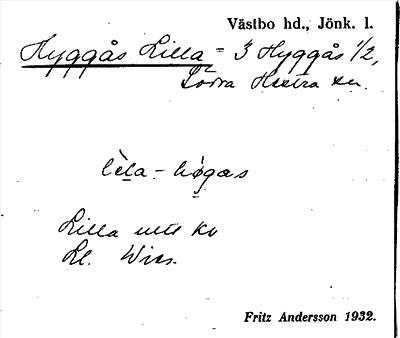 Västbo hd., Jönk. l.
Hyggås Lilla = 3 Hyggås 1/2,
Södra Hestra sn.
lèla - høgas
Lilla utt
Ll. Wies.
Fritz Andersson 1932.